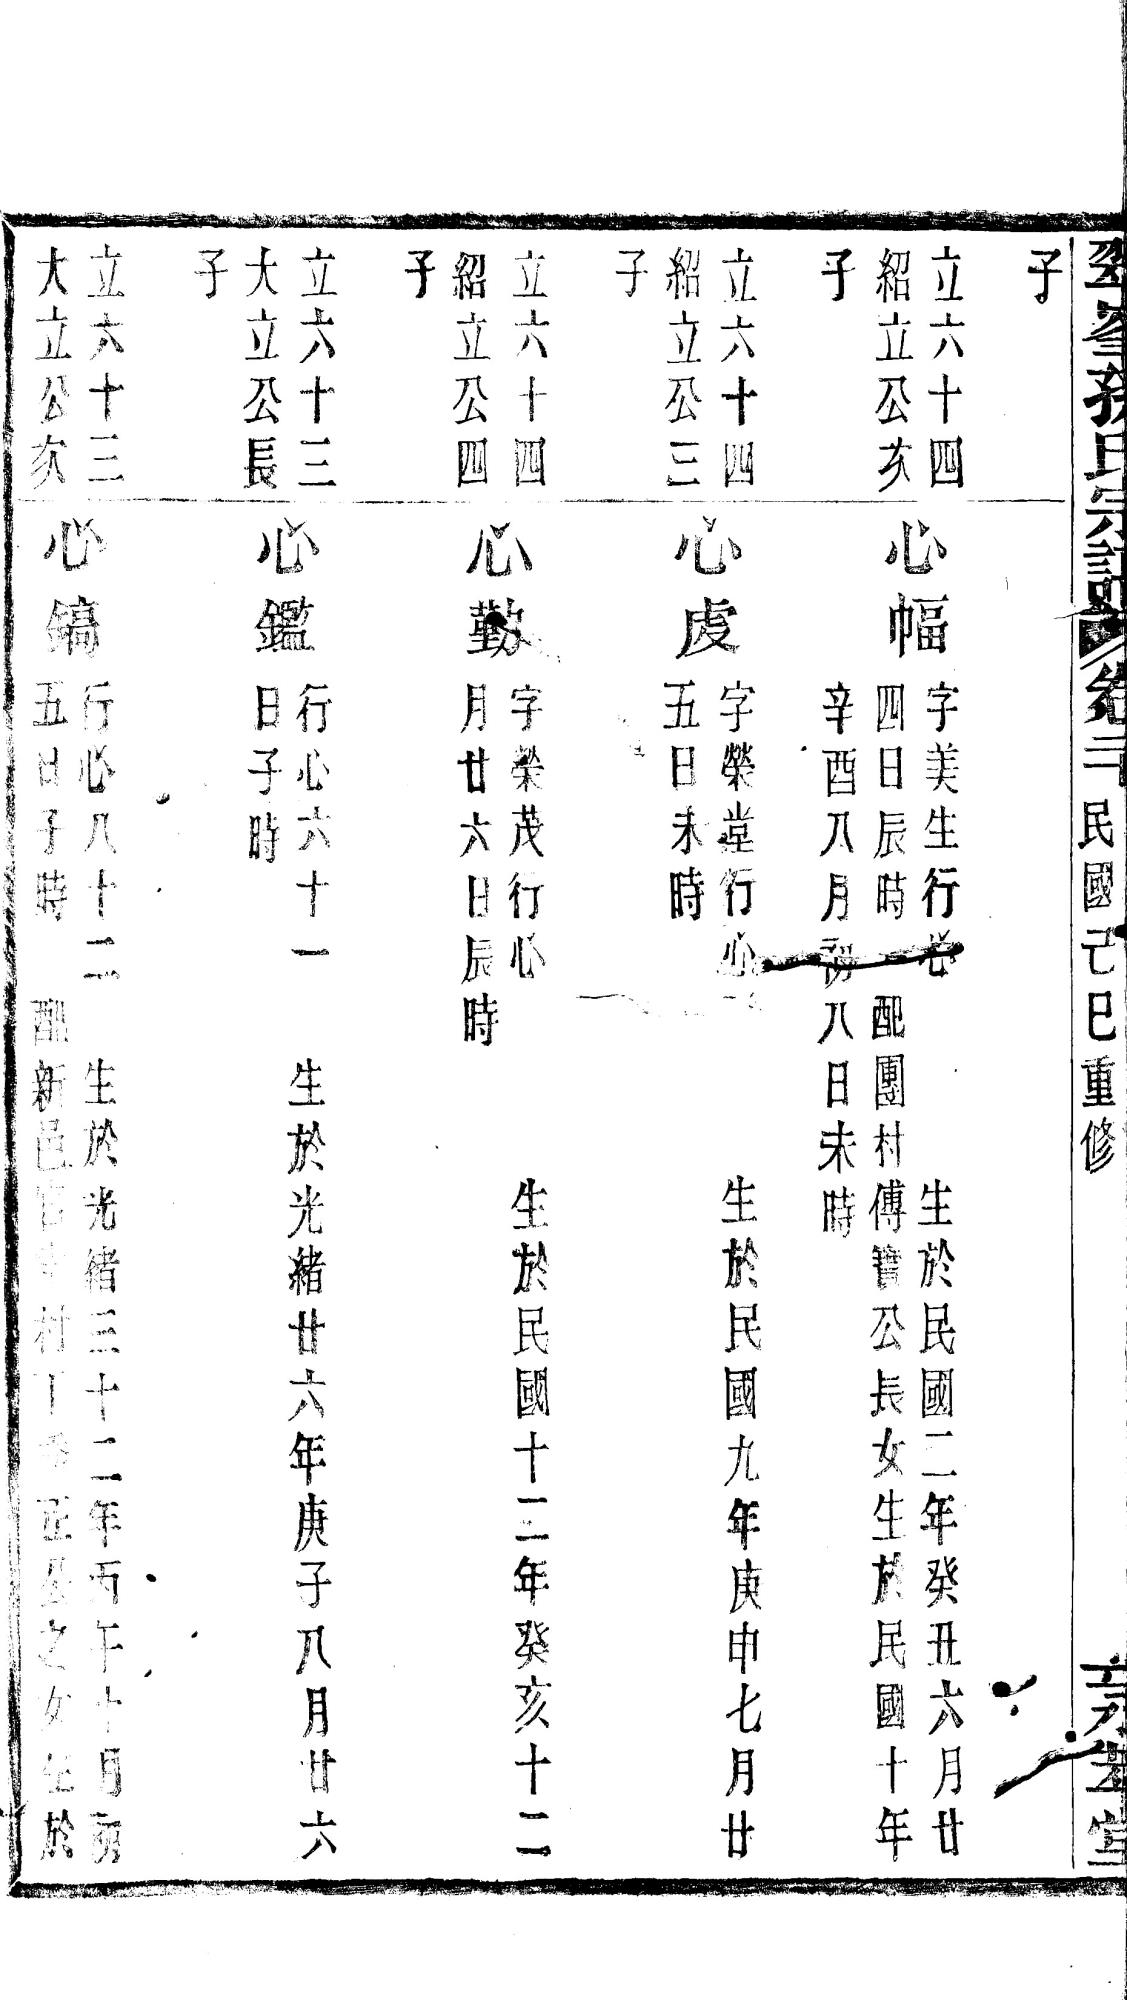 氏宗譜卷二
民國己巳重修
堂
子
立六十四
紹立公次
子
心幅
字美生行心
生於民國二年癸丑六月廿
四日辰時
配團村傅寶公長女生於民國十年
辛酉八月初八日未時
立六十四
紹立公三
子
心虔
字榮堂行心
生於民國九年庚申七月廿
五日未時
立六十四
紹立公四
子
心勤
字榮茂行心
生於民國十二年癸亥十二
月廿六日辰時
立六十三
大立公長
子
心鑑
行心六十一
生於光緒廿六年庚子八月廿六
日子時
立六十三
大立公次
心鎬
行心八十二
生於光緒三十二年丙午十月初
五日子時
配新邑
村
之女生於